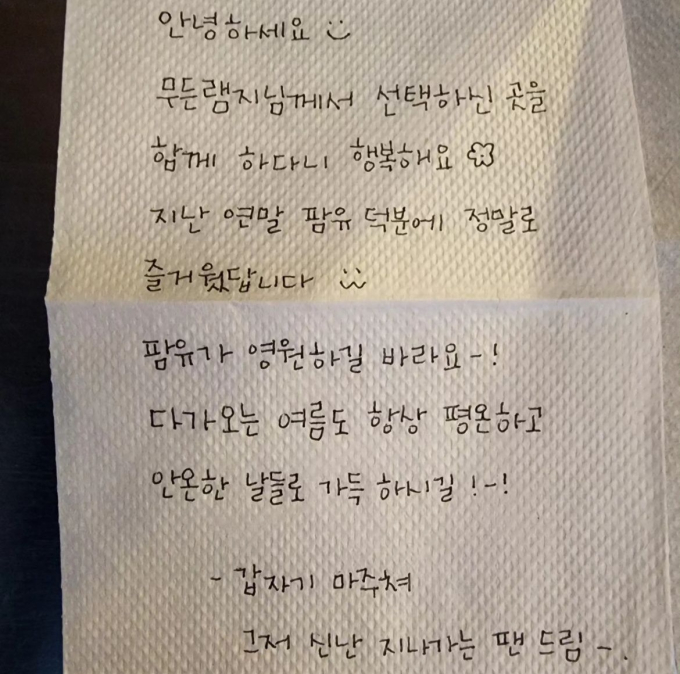 안녕하세요 :)
무든램지님께서 선택하신 곳을
함께 하다니 행복해요
지난 연말 팜유 덕분에 정말로
즐거웠답니다 :)
팜유가 영원하길 바라요-!
다가오는 여름도 항상 평온하고
안온한 날들로 가득 하시길!-!
- 갑자기 마주쳐
그저 신난 지나가는 팬 드림-.